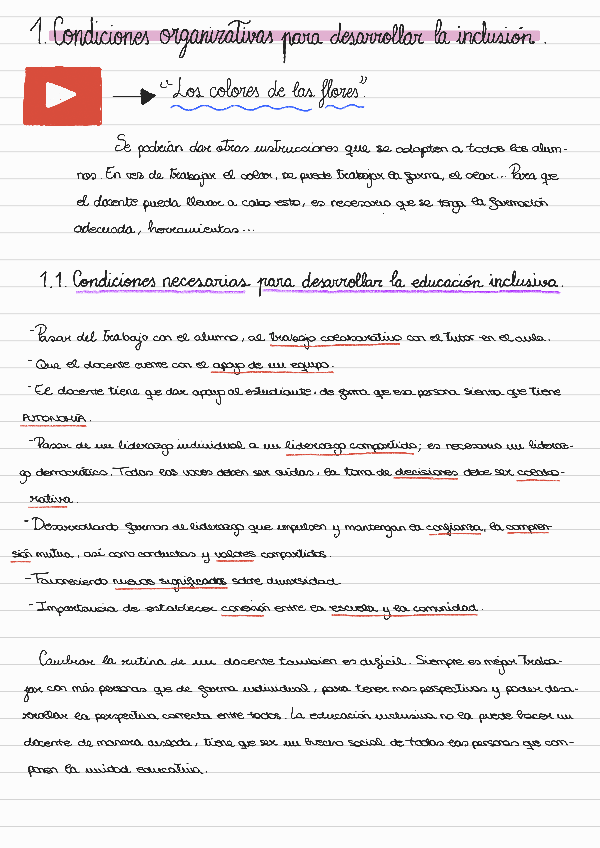 1. Condiciones organizativas para desarrollar la inclusión.
"Los colores de las flores".
Se podrían dar otras instrucciones que se adapten a todos los alum-
nos. En vez de trabajar el color, se puede trabajar la forma, el olor... Para que
el docente pueda llevar a cabo esto, es necesario que se tenga la formación
adecuada, herramientas...
1.1. Condiciones necesarias para desarrollar la educación inclusiva.
-Pasar del trabajo con el alumno, al trabajo colaborativo con el tutor en el aula.
-Que el docente cuente con el apoyo de un equipo.
-El docente tiene que dar apoyo al estudiante, de forma que esa persona sienta que tiene
AUTONOMÍA.
-Pasar de un liderazgo individual a un liderazgo compartido; es necesario un lideraz-
go democrático. Todas las voces deben ser oídas, la toma de decisiones debe ser colabo-
rativa.
-Desarrollando formas de liderazgo que impulsen y mantengan la confianza, la compren-
sión mutua, así como conductas y valores compartidos.
-Favoreciendo nuevos significados sobre diversidad
-Importancia de establecer conexión entre la escuela y la comunidad.
Cambiar la rutina de un docente también es difícil. Siempre es mejor traba-
jar con más personas que de forma individual, para tener más perspectivas y poder desa-
rrollar la perspectiva correcta entre todos. La educación inclusiva no la puede hacer un
docente de manera aislada, tiene que ser un hecho social de todas las personas que com-
ponen la unidad educativa.